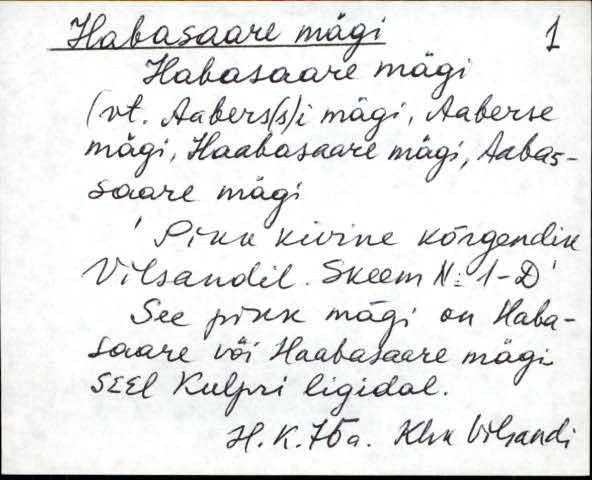 Habasaare mägi 1
Habasaare mägi
(vt. Aabers(s)i mägi, Aaberse
mägi, Haabasaare mägi, Aabas-
saare mägi
' Pikk kivine kõrgendik
Vilsandil. Skeem N: 1-D '
See pikk mägi on Haba-
saare või Haabasaare mägi
seel Kulpri ligidal.
H. K. 75a. Khk Vilsandi